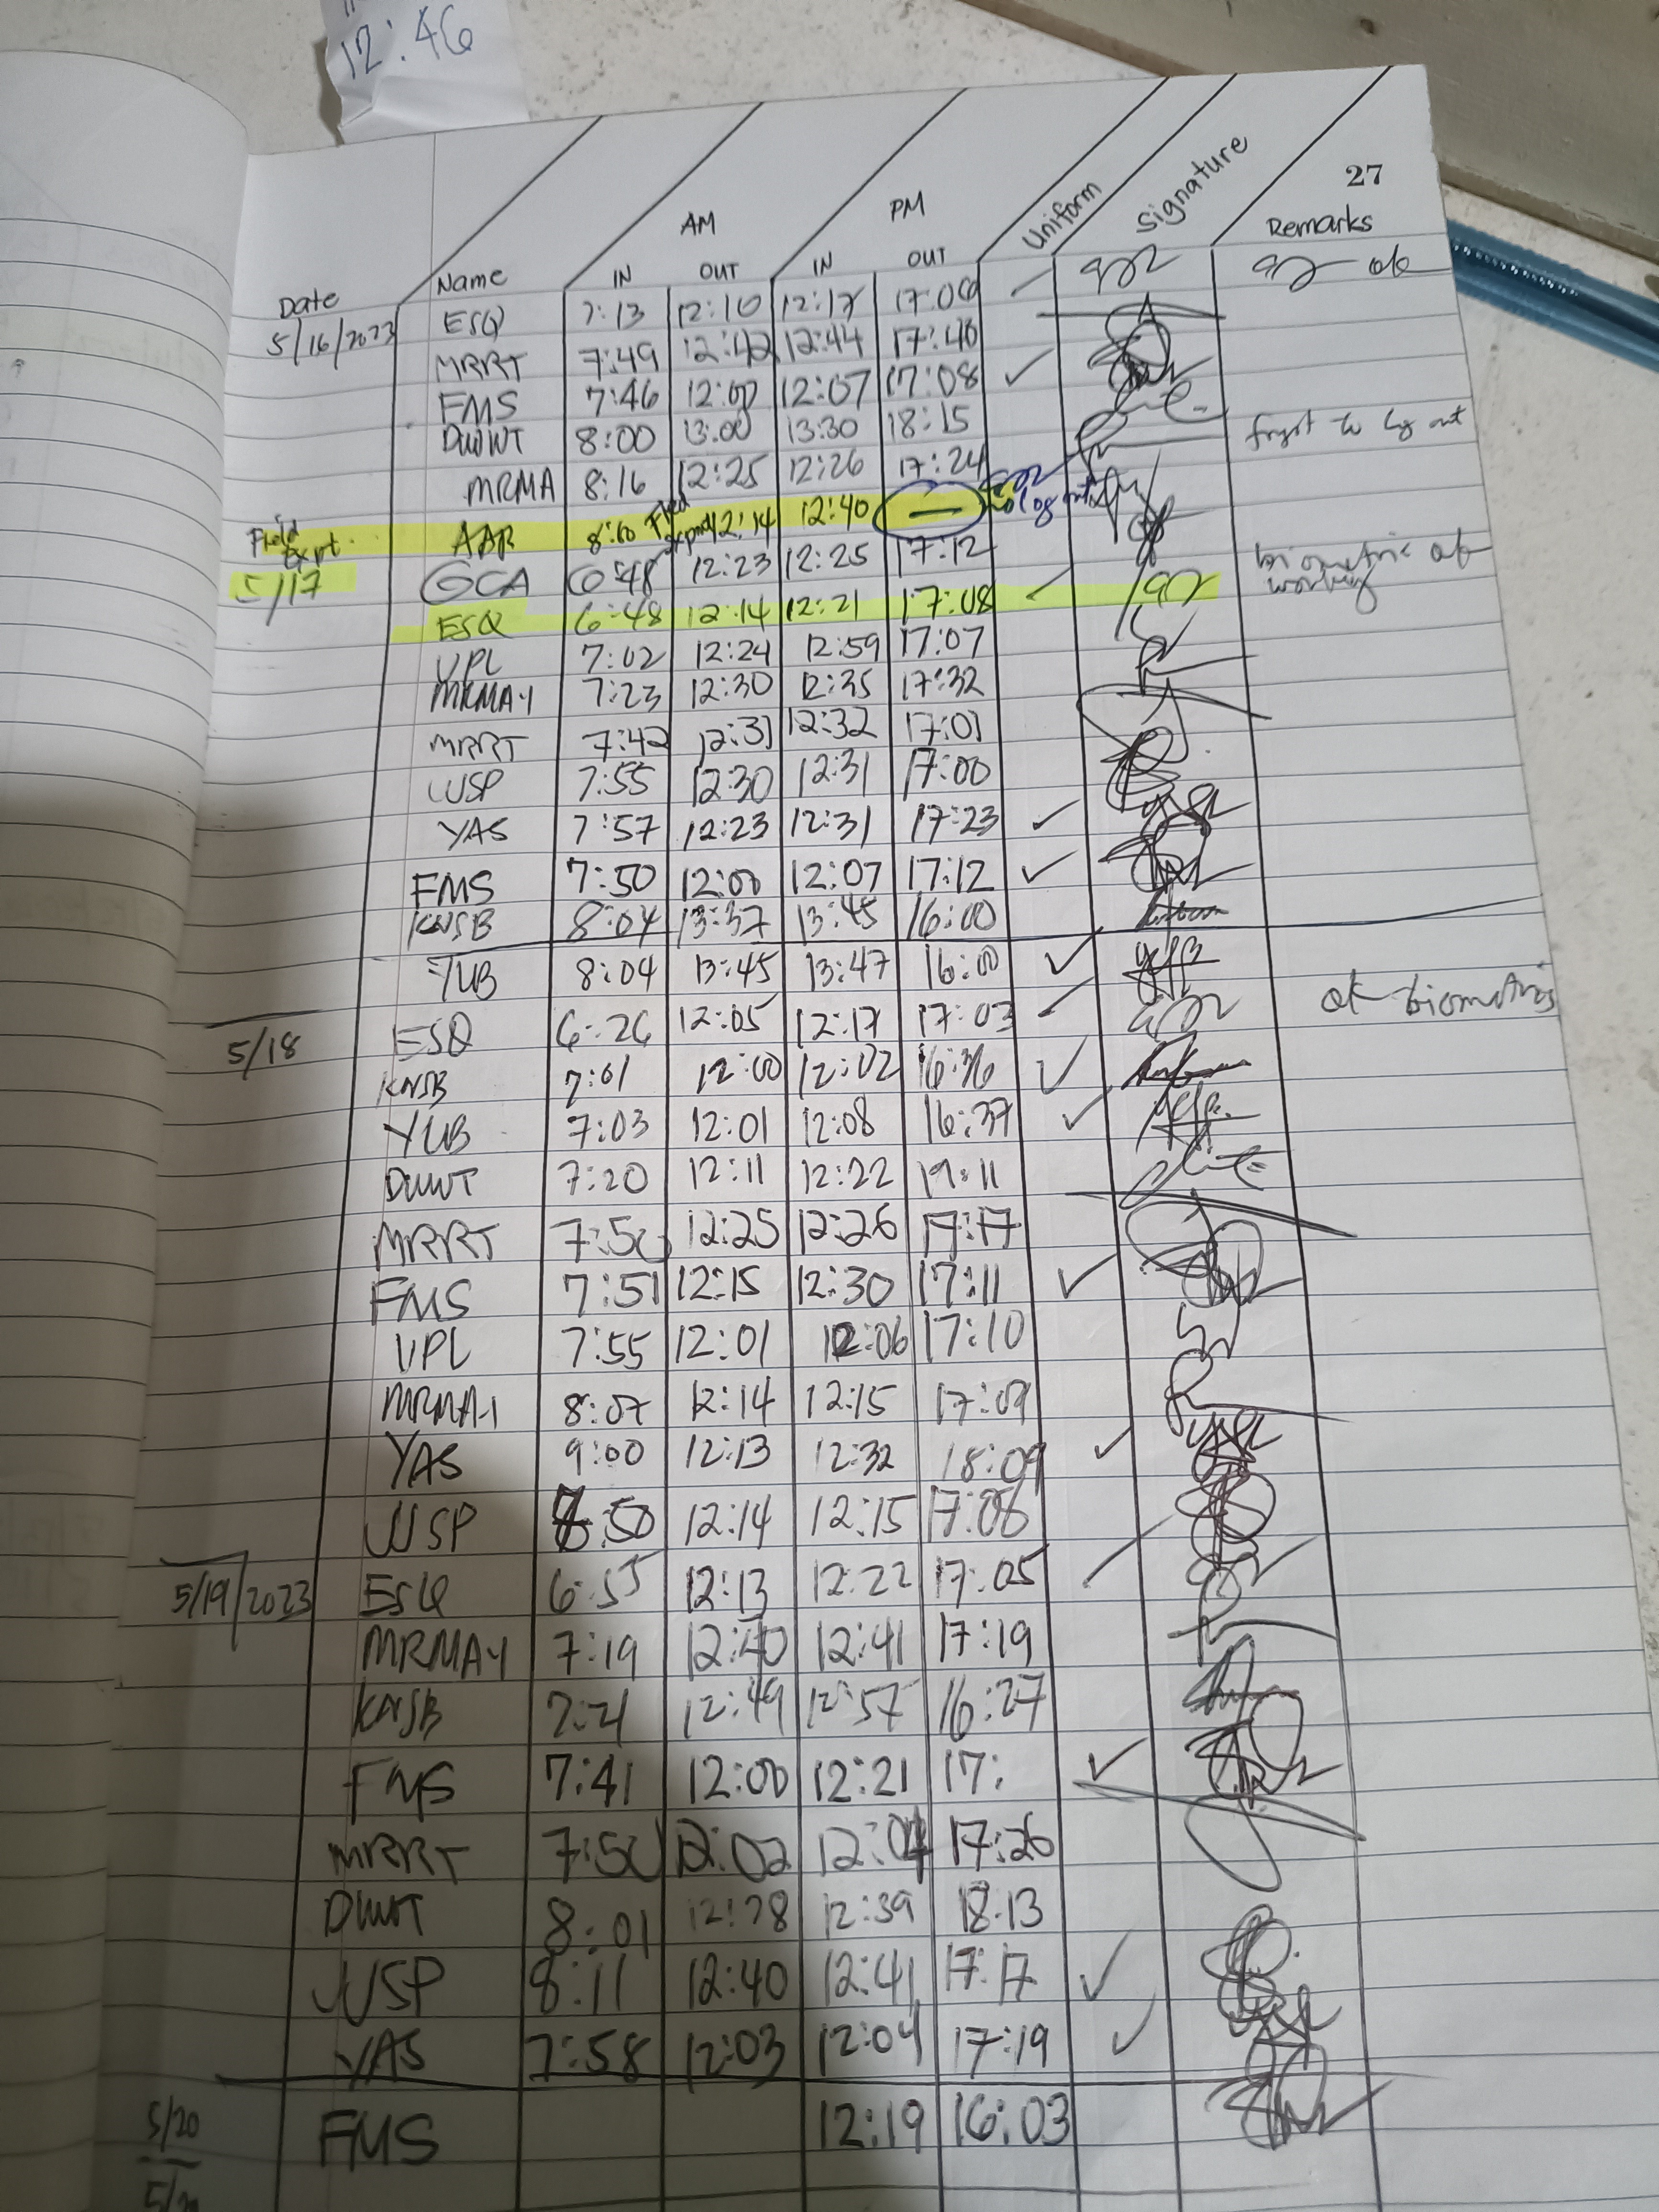 12:46
27
AM PM Uniform Signature Remarks
Date Name IN OUT IN OUT
5/16/2023 ESQ 7:13 12:10 12:17 17:06
MRRT 7:49 12:42 12:44 17:40
FMS 7:46 12:00 12:07 17:08 ✓
DWWT 8:00 13:00 13:30 18:15
MRMA 8:16 12:25 12:26 17:24
AAR 8:10 12:14 12:40 — no log out
Field Expt.
5/17 GCA 6:48 12:23 12:25 17:12 biometric ok
working
ESQ 6:48 12:14 12:21 17:08
VPL 7:02 12:24 12:59 17:07
MRMA-1 7:23 12:30 12:35 17:32
MRRT 7:42 12:31 12:32 17:01
JUSP 7:55 12:30 12:31 17:00
YAS 7:57 12:23 12:31 17:23 ✓
FMS 7:50 12:00 12:07 17:12 ✓
KNSB 8:04 13:37 13:45 16:00
YUB 8:04 13:45 13:47 16:00 ✓
5/18 ESQ 6:26 12:05 12:17 17:03 ok biometrics
KNSB 7:01 12:00 12:02 16:36 ✓
YUB 7:03 12:01 12:08 16:37 ✓
DWWT 7:20 12:11 12:22 19:11
MRRT 7:50 12:25 12:26 17:17
FMS 7:51 12:15 12:30 17:11 ✓
VPL 7:55 12:01 12:06 17:10
MRMA-1 8:07 12:14 12:15 17:09
YAS 9:00 12:13 12:32 18:09 ✓
JUSP :50 12:14 12:15 17:08
5/19/2023 ESQ 6:55 12:13 12:22 17:05
MRMA-1 7:19 12:40 12:41 17:19
KNSB 7:21 12:49 12:57 16:27
FMS 7:41 12:00 12:21 17: ✓
MRRT 7:50 12:02 12:04 17:26
DWWT 8:01 12:38 12:39 18:13
JUSP 8:11 12:40 12:41 17:17 ✓
YAS 7:58 12:03 12:04 17:19 ✓
5/20 FMS 12:19 16:03